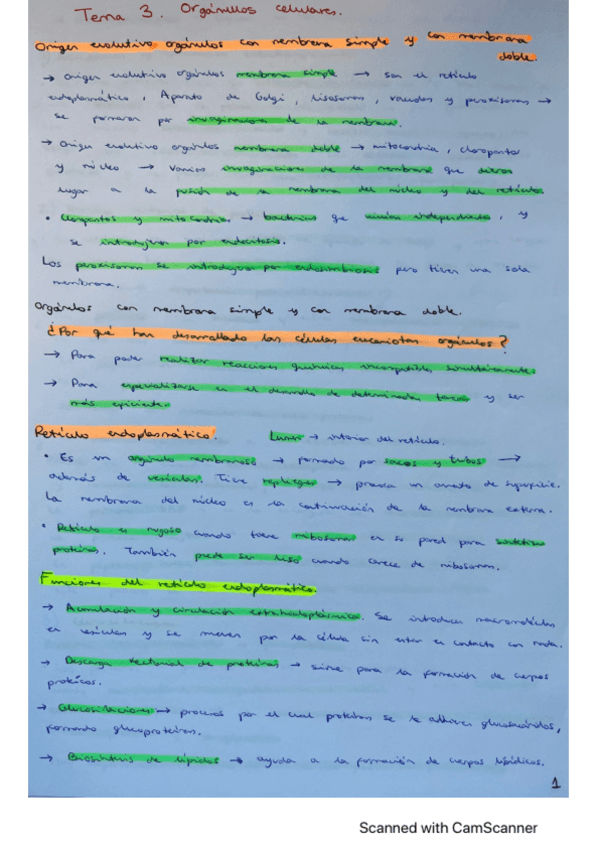 Tema 3. Orgánulos celulares.
Origen evolutivo orgánulos con membrana simple y con membrana
doble.
→ Origen evolutivo orgánulos membrana simple → son el retículo
endoplasmático, Aparato de Golgi, lisosomas, vacuolas y peroxisomas →
se formaron por invaginaciones de la membrana.
→ Origen evolutivo orgánulos membrana doble → mitocondria, cloroplastos
y núcleo → Varias invaginaciones de la membrana que dieron
lugar a la fusión de la membrana del núcleo y del retículo
• Cloroplastos y mitocondrias → bacterias que vivían independientes, y
se introdujeron por endocitosis.
Los peroxisomas se introdujeron por endosimbiosis pero tienen una sola
membrana.
Orgánulos con membrana simple y con membrana doble.
¿Por qué han desarrollado las células eucariotas orgánulos?
→ Para poder realizar reacciones químicas incompatibles simultáneamente.
→ Para especializarse en el desarrollo de determinadas tareas y ser
más eficiente.
Retículo endoplasmático. Lumen → interior del retículo.
• Es un orgánulo membranoso → formado por sacos y tubos →
además de vesículas. Tiene repliegues → provoca un aumento de superficie.
La membrana del núcleo es la continuación de la membrana externa.
• Retículo es rugoso cuando tiene ribosomas en su pared para sintetizar
proteínas. También puede ser liso cuando carece de ribosomas.
Funciones del retículo endoplasmático.
→ Acumulación y circulación Se introducen macromoléculas
en vesículas y se mueven por la célula sin entrar en contacto con nada.
→ Descarga vectorial de proteínas → sirve para la formación de cuerpos
proteicos.
→ Glucosilaciones → proceso por el cual proteínas se le adhieren
formando glucoproteínas.
→ Biosíntesis de lípidos → ayuda a la formación de cuerpos lipídicos.
1
Scanned with CamScanner